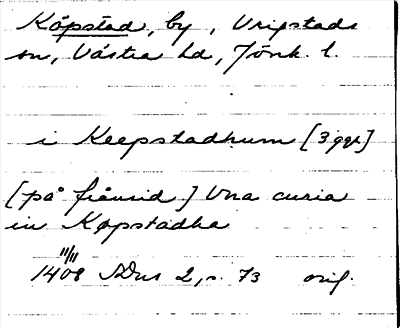 Köpstad, by, Vripstads
sn, Västra hd, Jönk. l.
i Keepstadhum [3 ggr]
[på frånsid] Una curia
in Køpstadha
11/11
1408 SDns 2, s. 73 orig.